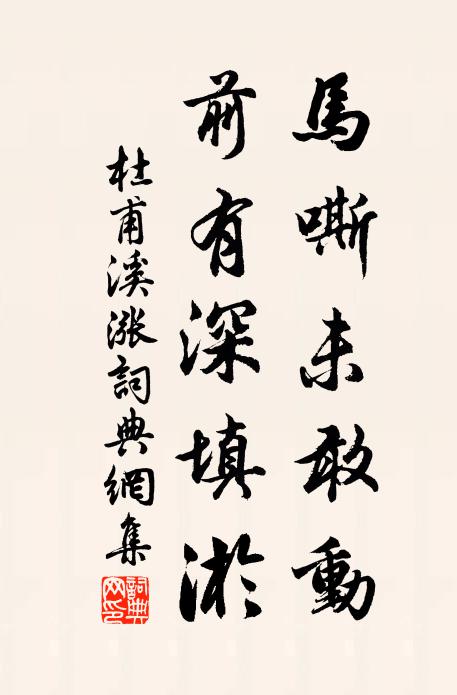 馬嘶未敢動
前有深填淤
杜甫溪漲詞典網集
詞典
网印